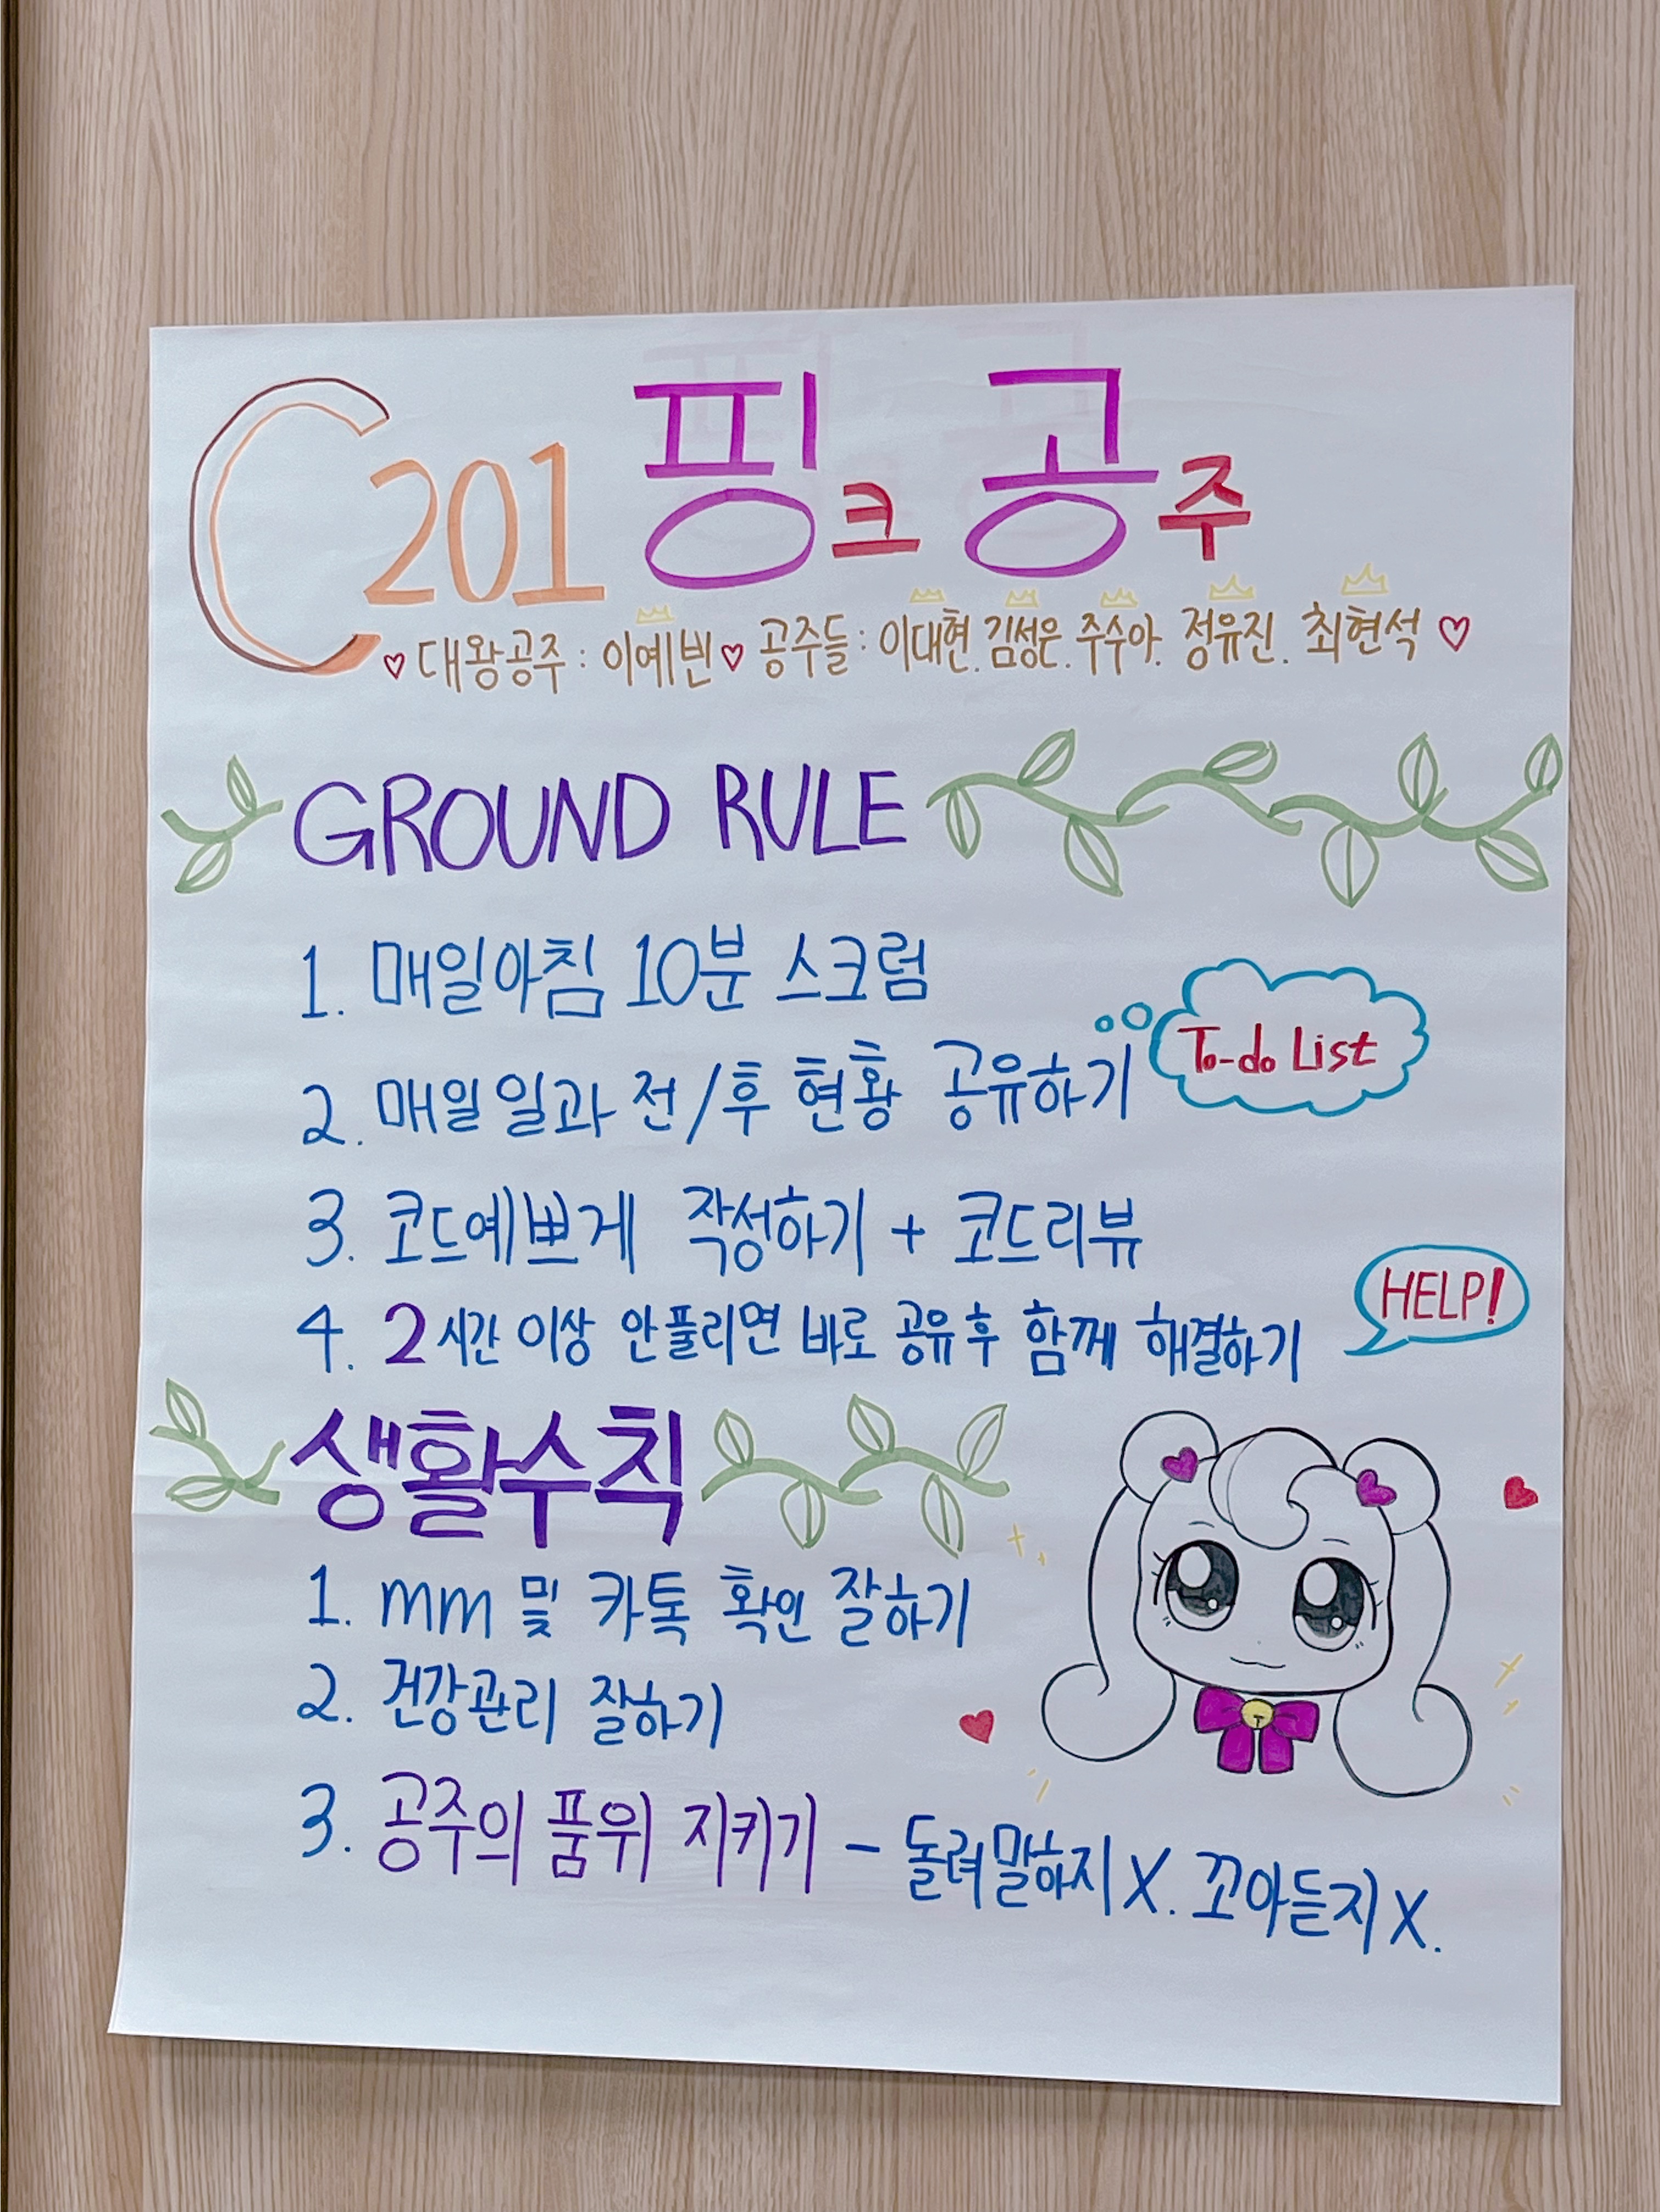 C201 핑크 공주
♡ 대왕공주 : 이예빈 ♡ 공주들 : 이대현. 김성은. 주수아. 정유진. 최현석 ♡
GROUND RULE
1. 매일아침 10분 스크럼
2. 매일 일과 전/후 현황 공유하기
To-do List
3. 코드예쁘게 작성하기 + 코드리뷰
4. 2시간 이상 안풀리면 바로 공유 후 함께 해결하기
HELP!
생활수칙
1. mm 및 카톡 확인 잘하기
2. 건강관리 잘하기
3. 공주의 품위 지키기 - 돌려말하지 X. 꼬아듣지 X.
T